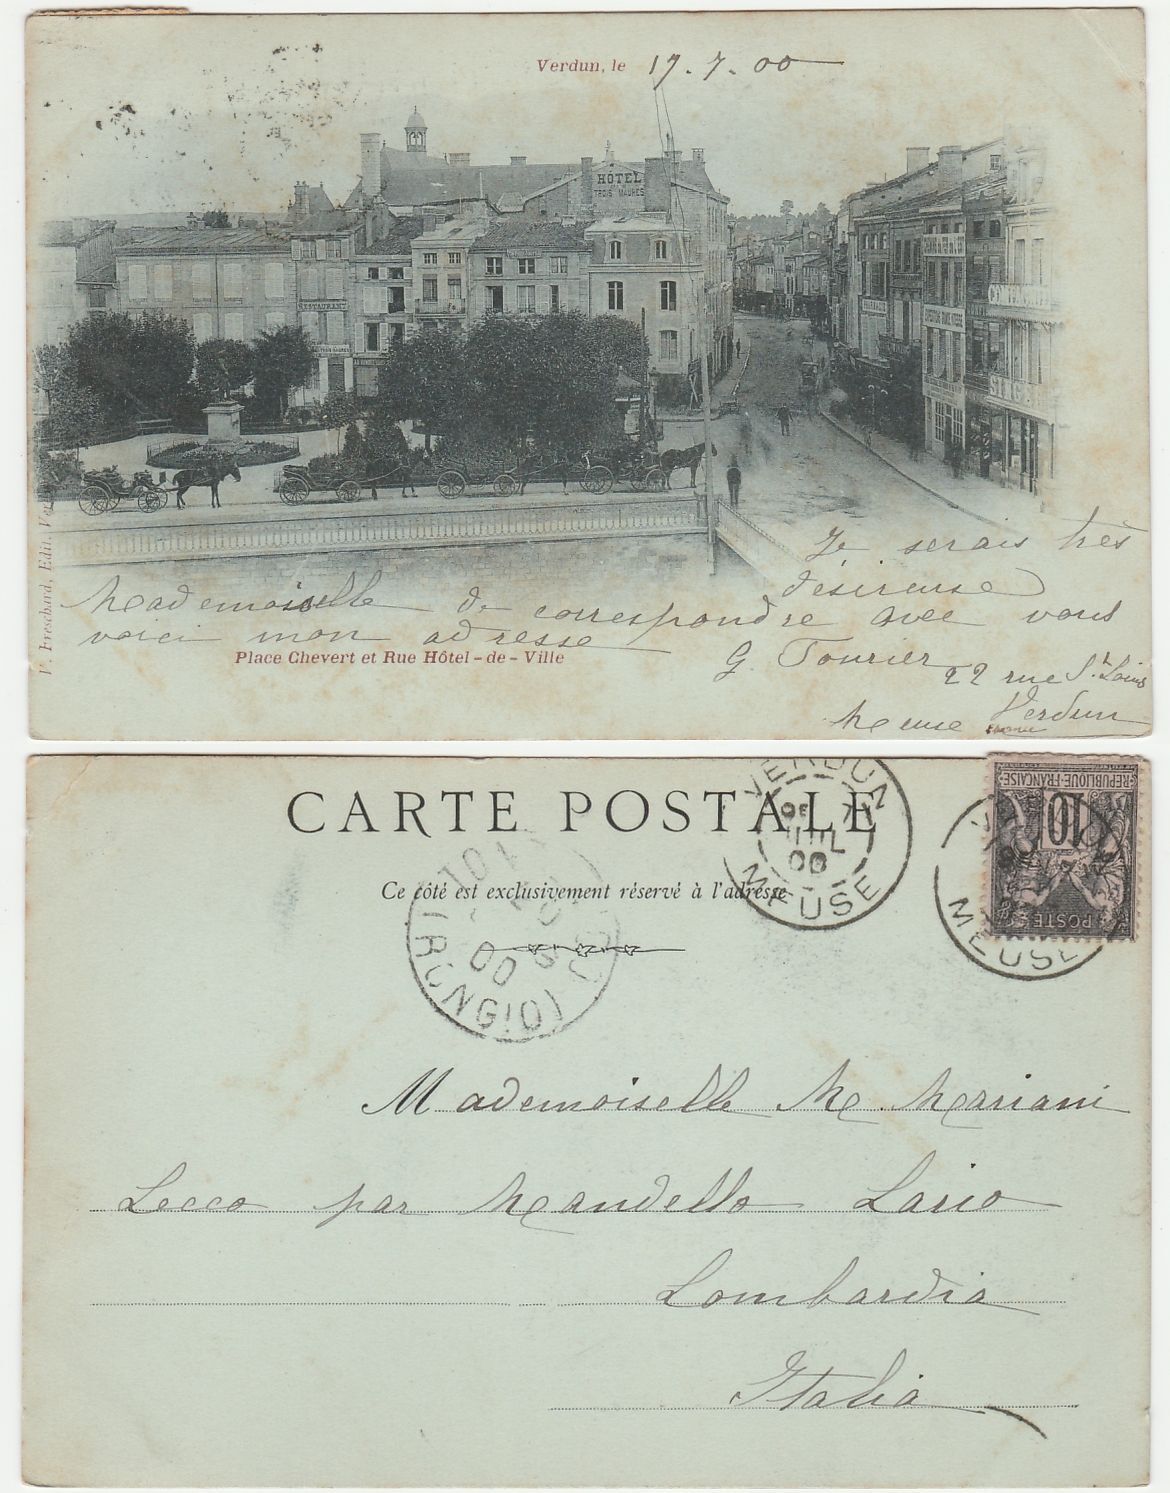 Verdun, le 17.7.00
HÔTEL
TROIS MAURES
RESTAURANT
Je serais très
Mademoiselle désireuse
de correspondre avec vous
voici mon adresse
G. Tourier
22 rue St. Louis
Verdun
Meuse
Place Chevert et Rue Hôtel-de-Ville
F. Freschard, Edit., Ver
CARTE POSTALE
Ce côté est exclusivement réservé à l'adresse
VERDUN
JUIL
00
MEUSE
VERDUN
MEUSE
RÉPUBLIQUE-FRANÇAISE
10
POSTES
00
Mademoiselle M. Mariani
Lecco par Mandello Lario
Lombardia
Italia